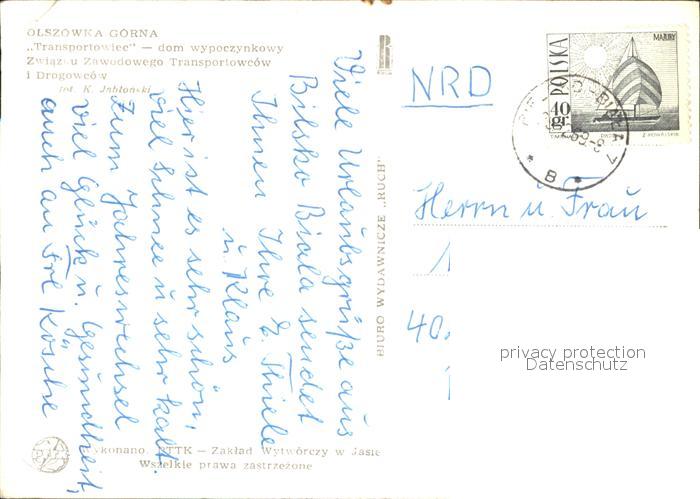 OLSZÓWKA GÓRNA
„Transportowiec” — dom wypoczynkowy
Związku Zawodowego Transportowców
i Drogowców
fot. K. Jabłoński
Viele Urlaubsgrüße aus
Bilsko Biala sendet
Ihnen Ihre E. Thiele
u. Klaus
Hier ist es sehr schön,
viel Schnee u sehr kalt.
Zum Jahreswechsel
viel Glück u. Gesundheit,
auch an Frl Kösche
Wykonano. PTTK — Zakład Wytwórczy w Jaśle
Wszelkie prawa zastrzeżone
BIURO WYDAWNICZE „RUCH”
NRD
POLSKA
40 gr
MAZURY
Herrn u. Frau
1
40.
privacy protection
Datenschutz